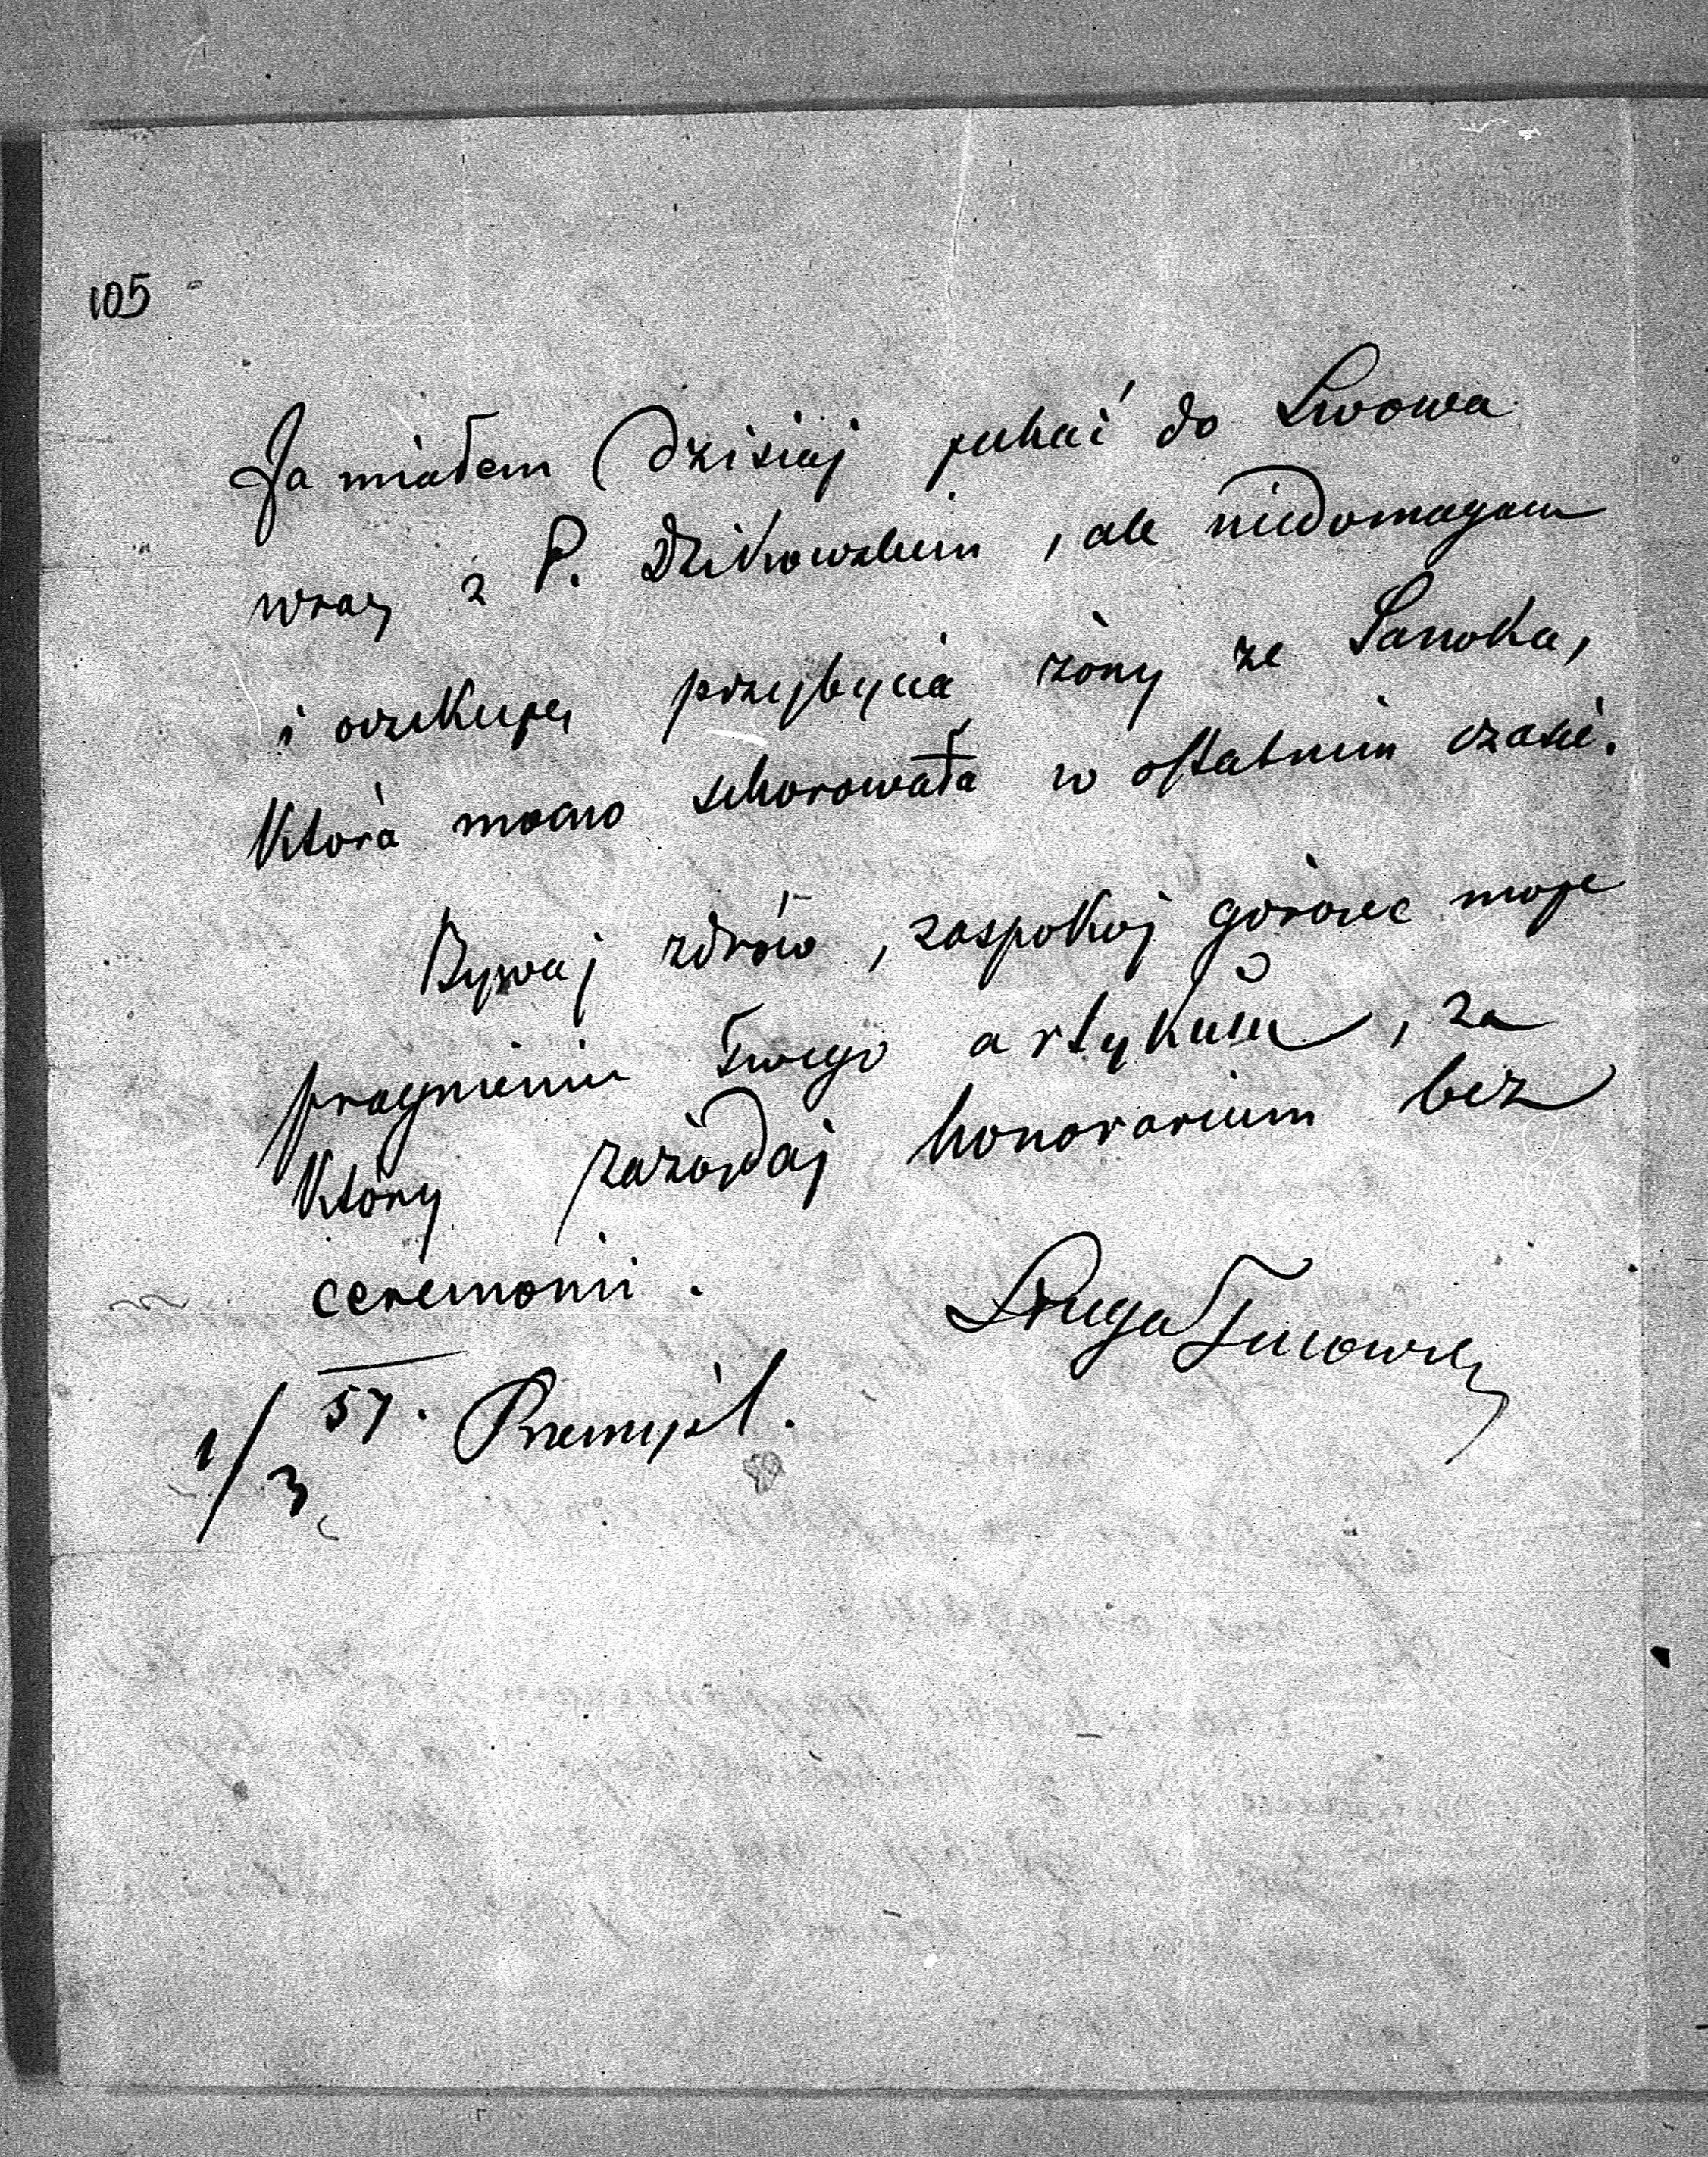 105
Ja miałem dzisiaj jechać do Lwowa
wraz z P. Dzikowskim, ale niedomagam
i oczekuję przybycia żony ze Sanoka,
która mocno schorowała w ostatnim czasie.
Bywaj zdrów, zaspokój gorące moje
pragnienie Twego artykułu, za
który zażądaj honorarium bez
ceremonii.
Sługa Twowy
1/3 57. Przemyśl.